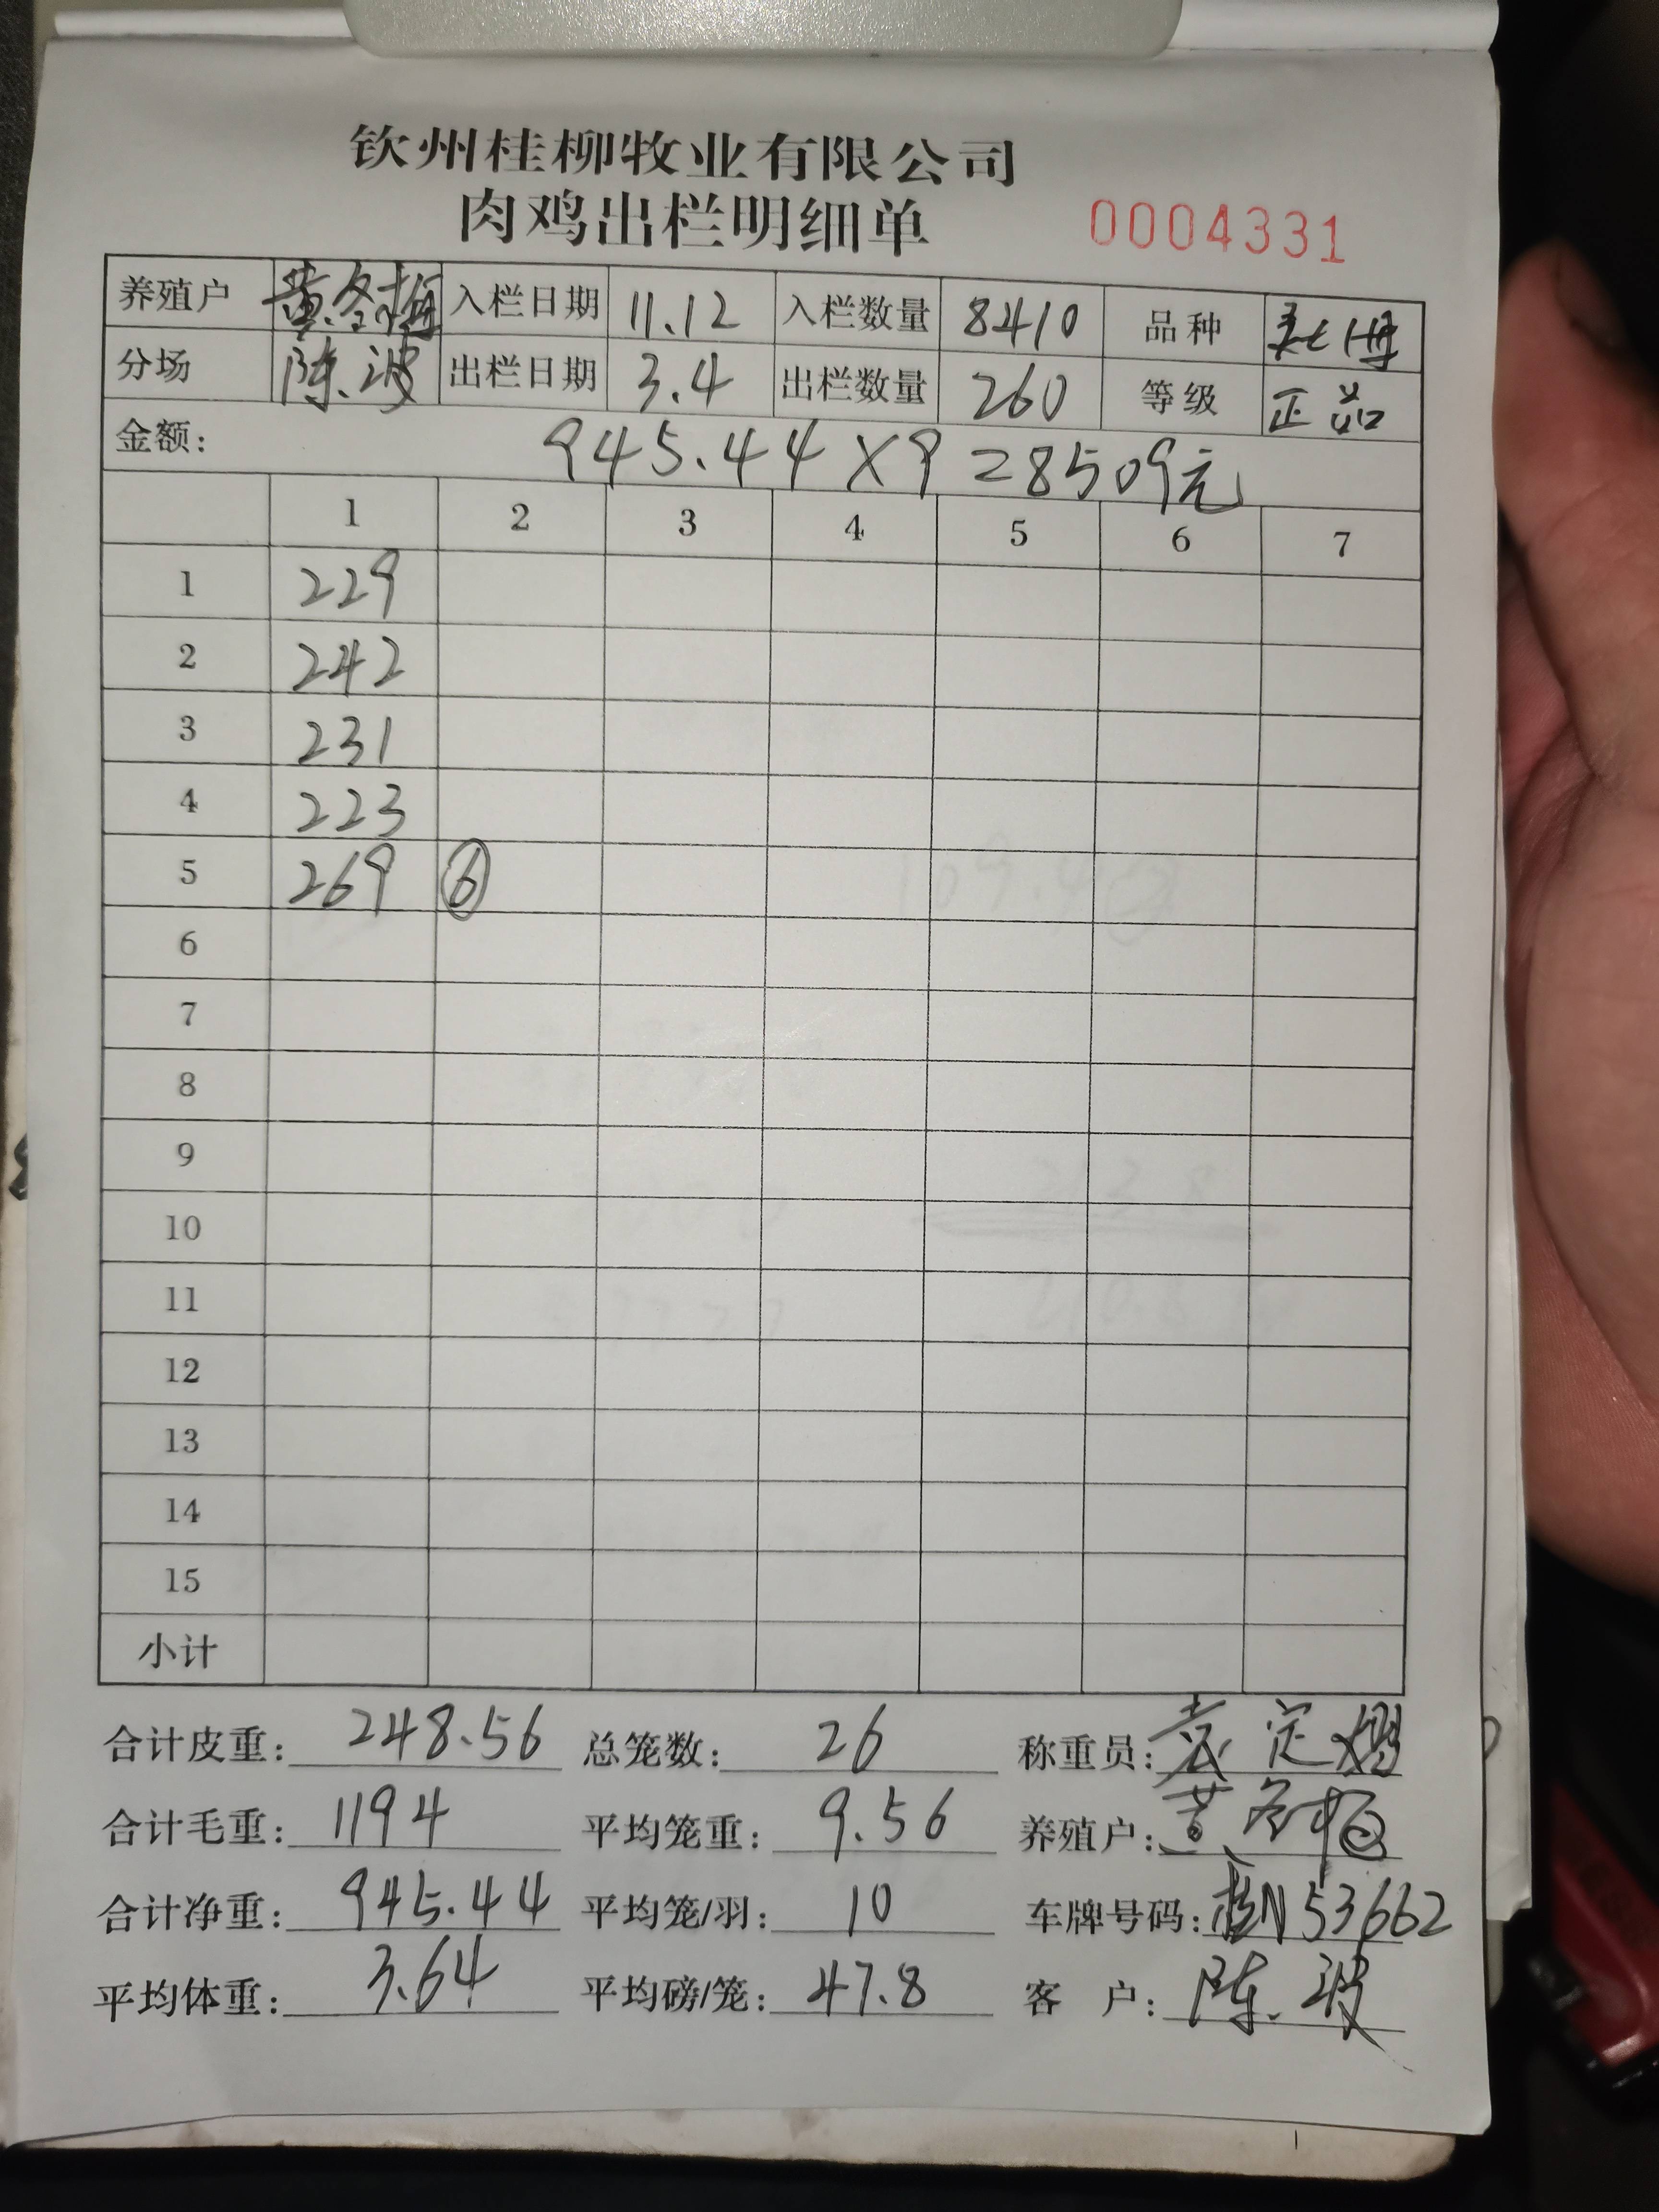 钦州桂柳牧业有限公司
肉鸡出栏明细单 0004331
养殖户 黄冬梅 入栏日期 11.12 入栏数量 8410 品种
分场 陈波 出栏日期 3.4 出栏数量 260 等级 正品
金额: 945.44×9=8509元
1 2 3 4 5 6 7
1 229
2 242
3 231
4 223
5 269 ⑥
6
7
8
9
10
11
12
13
14
15
小计
合计皮重: 248.56 总笼数: 26 称重员: 定
合计毛重: 1194 平均笼重: 9.56 养殖户: 黄冬梅
合计净重: 945.44 平均笼/羽: 10 车牌号码: 桂N53662
平均体重: 3.64 平均磅/笼: 47.8 客 户: 陈波